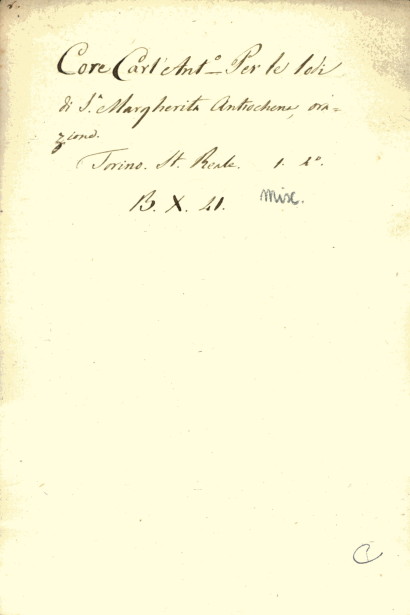 Core Carl'Ant.o Per le lodi
di S.a Margherita Antiochena, ora=
zione.
Torino. St. Reale. 1. 4o.
B. X. 41. Misc.
C